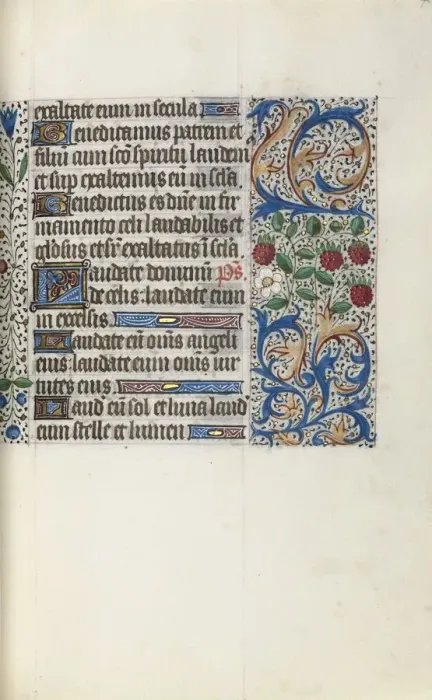 exaltate eum in secula
Benedicamus patrem et
filiu cum sco spiritu laudem
et sup exaltemus eu in scla
Benedictus es dne in fir
mamento celi laudabilis et
glosus et sup exaltatus i scla
Laudate dominu ps
de celis: laudate eum
in excelsis
Laudate eu omns angeli
eius: laudate eum omns vir
tutes eius
Laud eu sol et luna laud
eum stelle et lumen